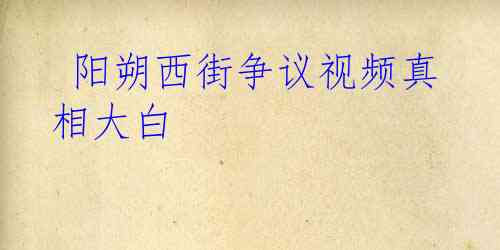 阳朔西街争议视频真
相大白